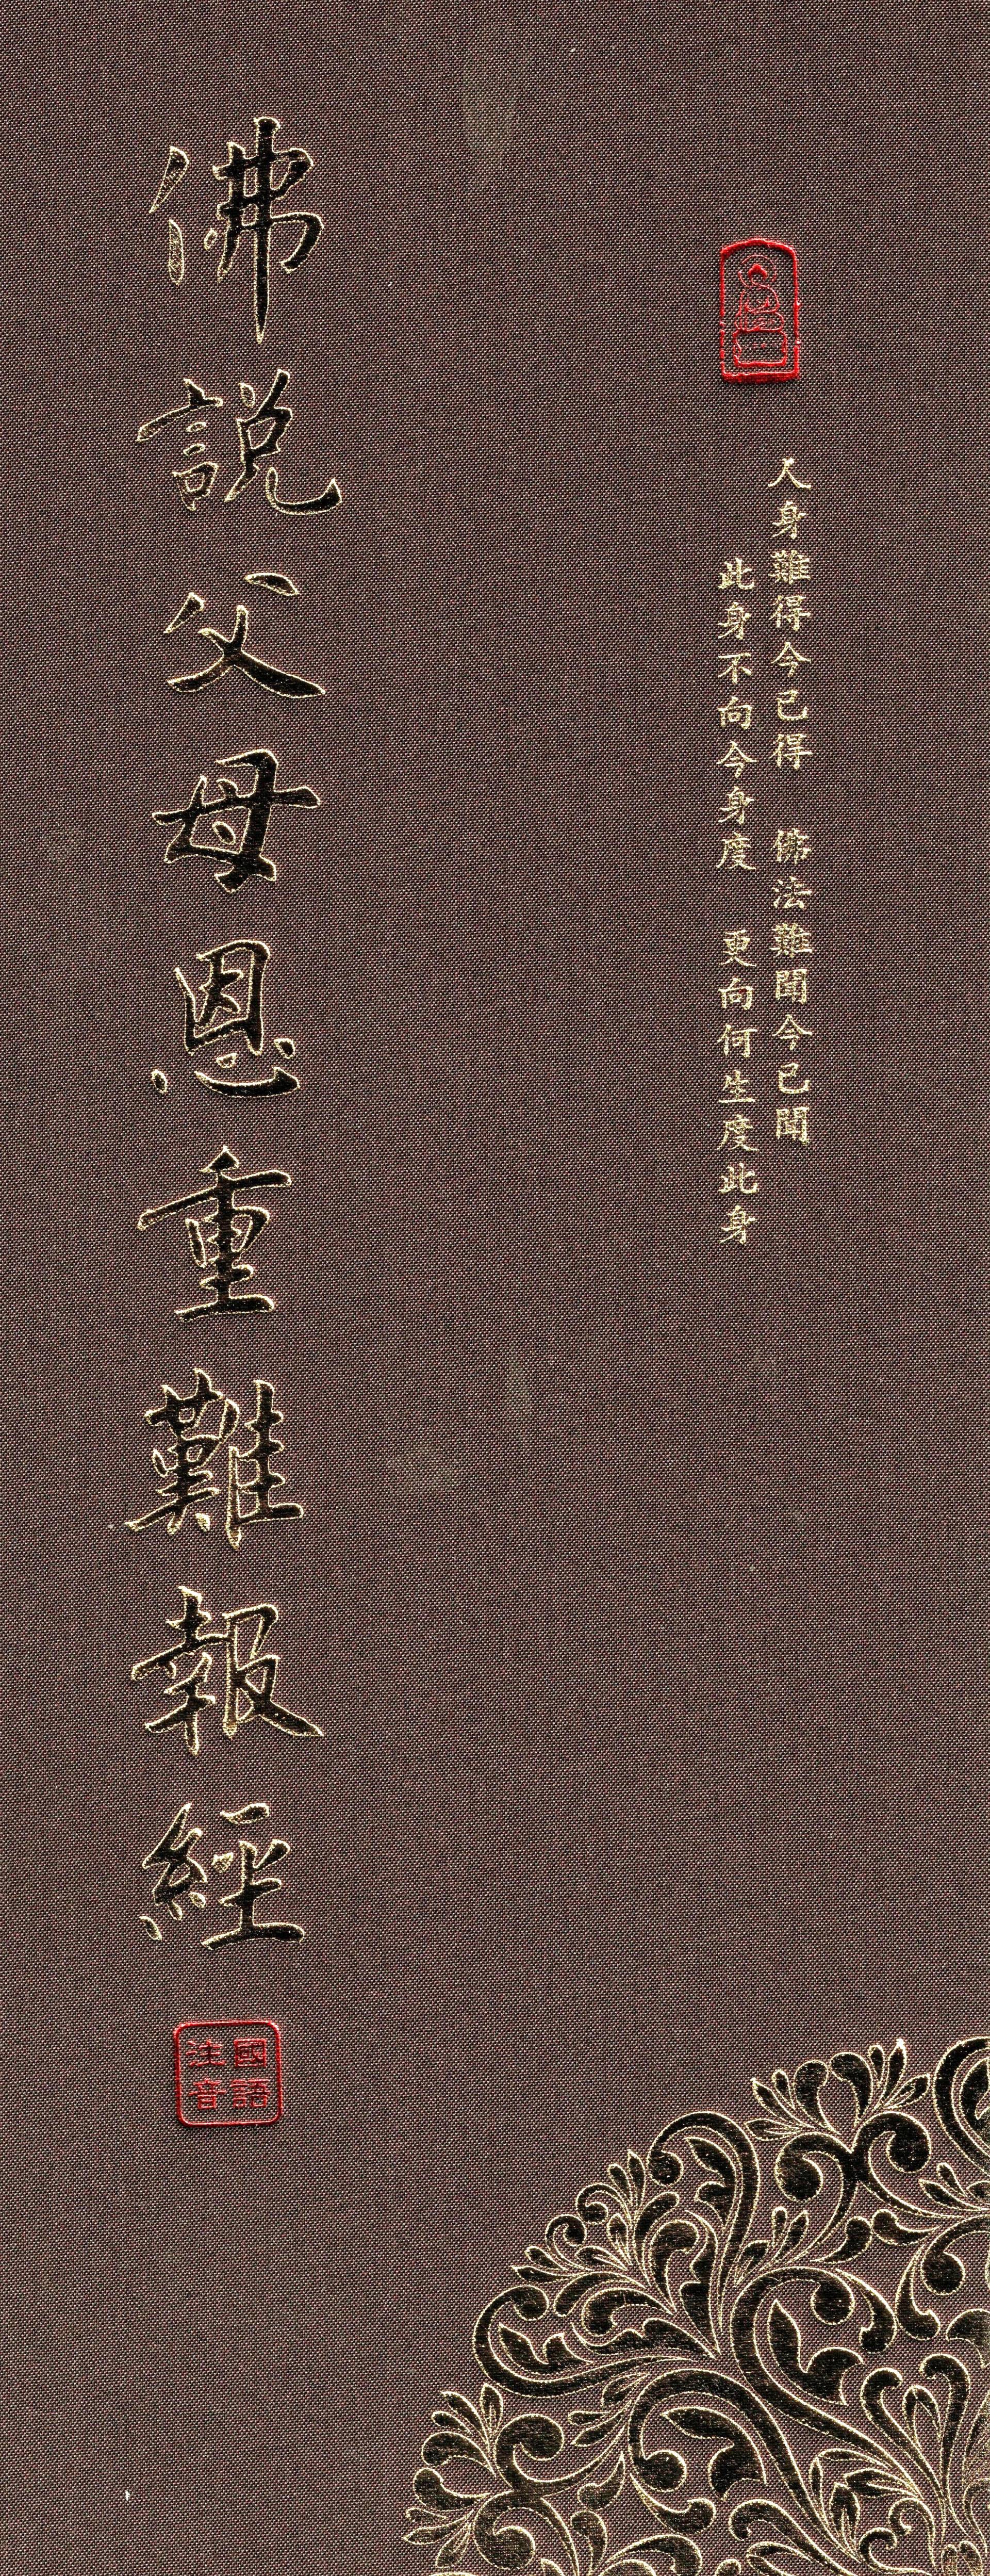 人身難得今已得　佛法難聞今已聞
此身不向今身度　更向何生度此身
佛説父母恩重難報經
國語
注音